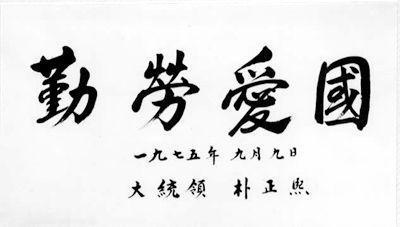 勤勞愛國
一九七五年 九月九日
大統領 朴正煕